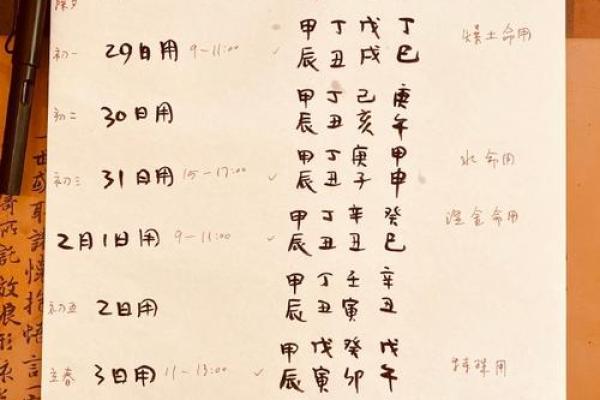 除夕
初一 29日用 9-11:00 甲辰 丁丑 戊戌 丁巳 燥土命用
初二 30日用 甲辰 丁丑 己亥 庚午
初三 31日用 15-17:00 ✓ 甲辰 丁丑 庚子 甲申 水命用
2月1日用 9-11:00 ✓ 甲辰 丁丑 辛丑 癸巳 湿金命用
初五 2日用 甲辰 丁丑 壬寅 辛丑
立春 3日用 11-13:00 ✓ 甲辰 戊寅 癸卯 戊午 特殊用